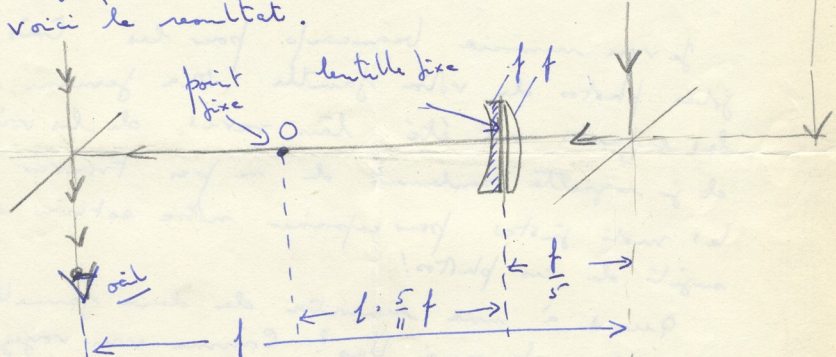 voici le resultat.
point fixe
lentille fixe
f f
O
oeil
f
5
f. 5/11 f
f